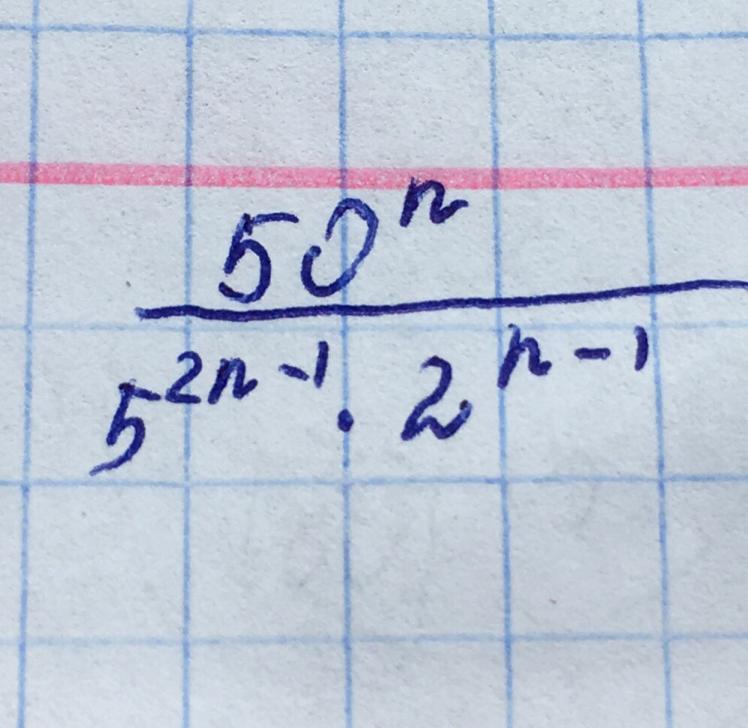 50ⁿ
5²ⁿ⁻¹ · 2ⁿ⁻¹